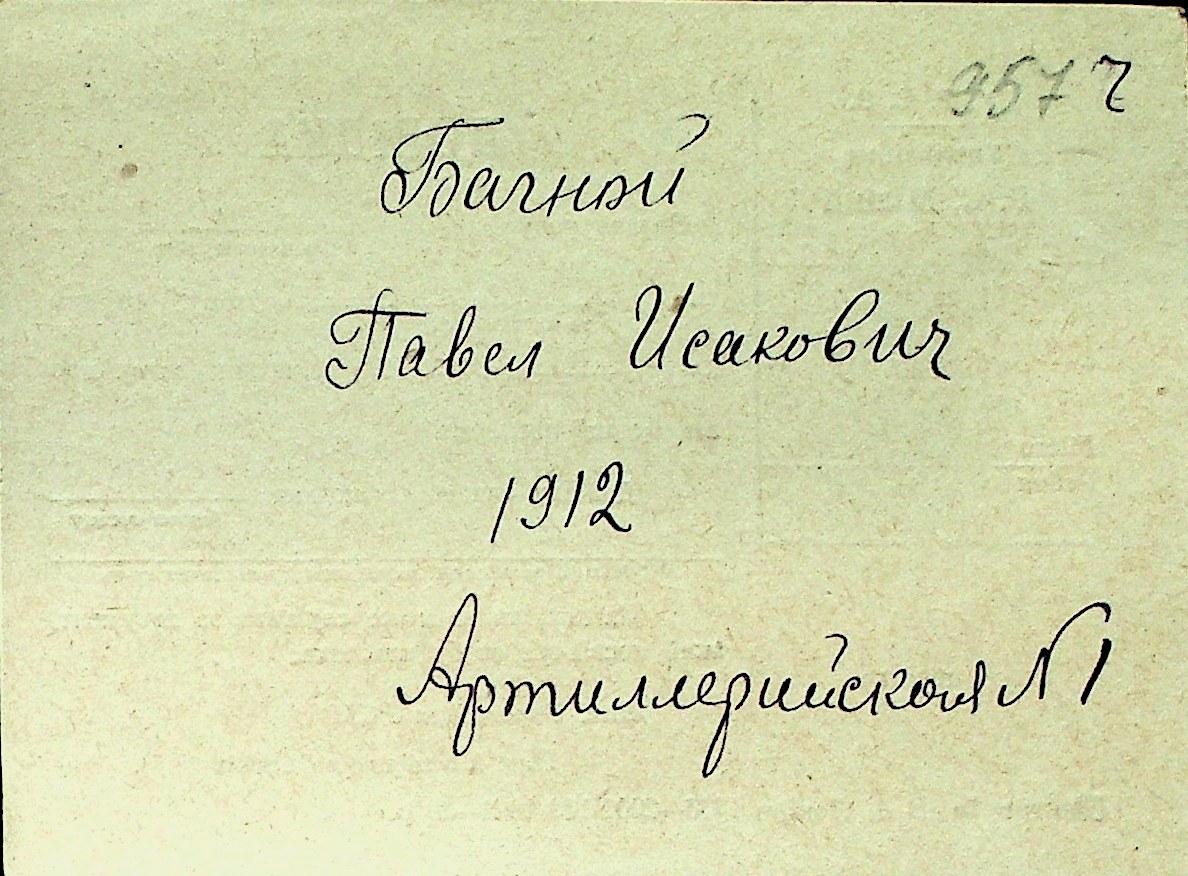 957 ч
Багний
Павел Исакович
1912
Артиллерийская № 1